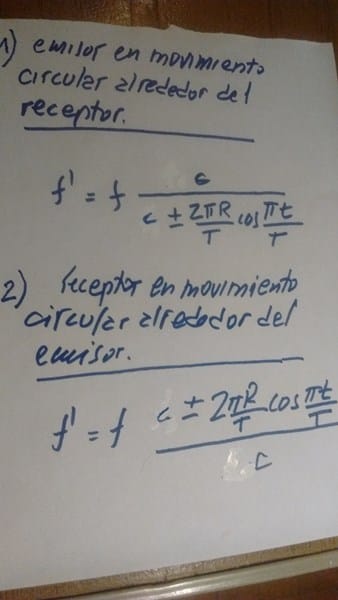 1) emisor en movimiento
circular alrededor del
receptor.
f' = f c / (c ± 2πR/T cos πt/T)
2) receptor en movimiento
circular alrededor del
emisor.
f' = f (c ± 2πR/T cos πt/T) / c